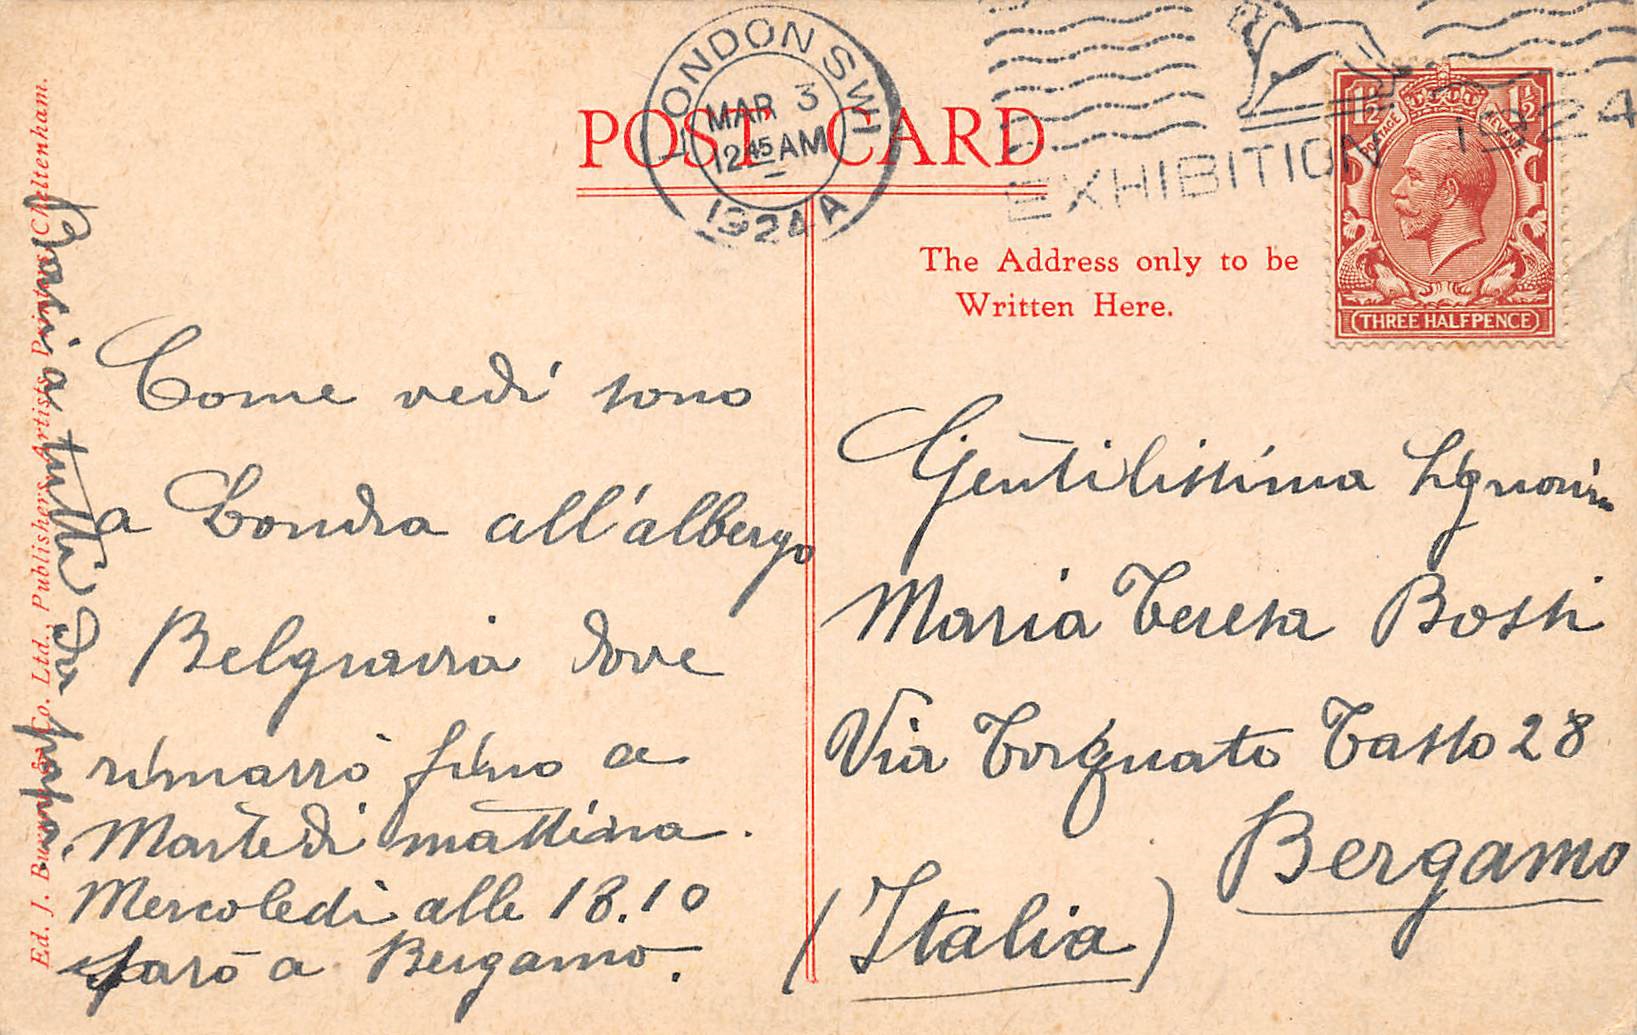 LONDON S.W.1
MAR 3
12 45 AM
1924 A
EXHIBITION 1924
POST CARD
The Address only to be
Written Here.
1½ 1½
POSTAGE REVENUE
THREE HALFPENCE
Come vedi sono
a Londra all'albergo
Belgravia dove
rimarrò fino a
Martedì mattina.
Mercoledì alle 18.10
sarò a Bergamo.
Baci a tutti da papà.
Gentilissima Signorina
Maria Teresa Bossi
Via Torquato Tasso 28
Bergamo
(Italia)
Ed. J. Burrow & Co. Ltd., Publishers, Artists, Printers, Cheltenham.